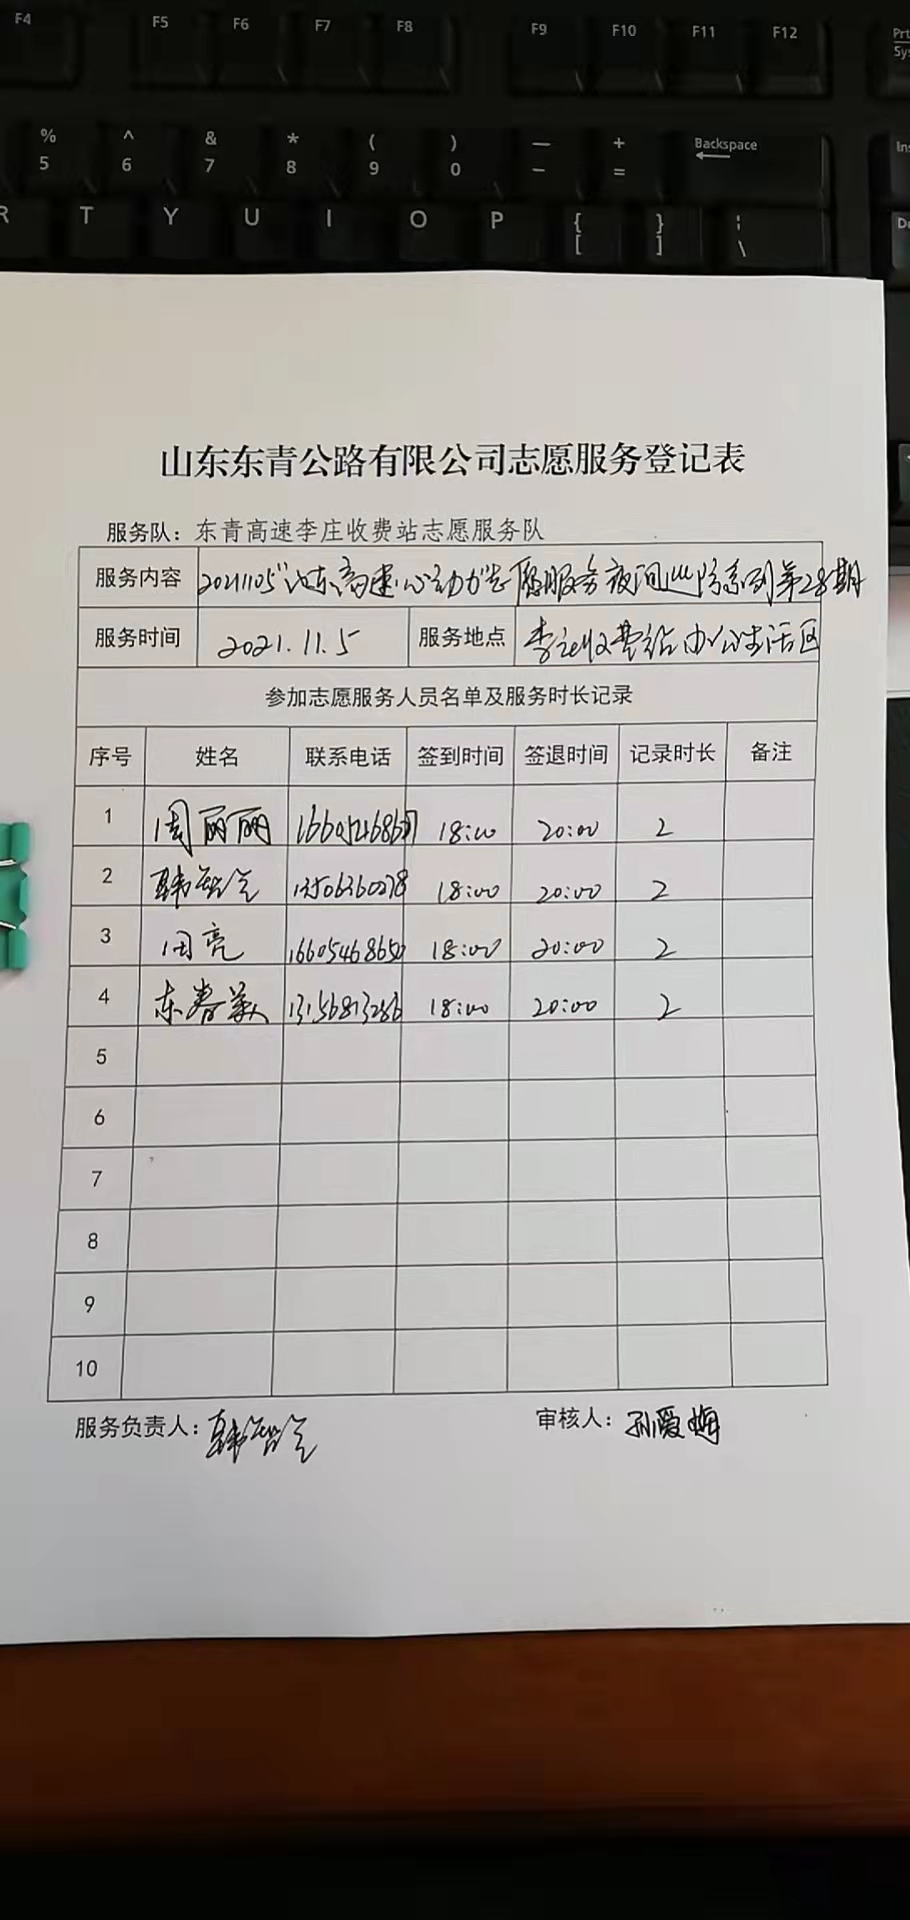 F4 F5 F6 F7 F8 F9 F10 F11 F12 Prt
Sy
% ^ & * ( ) — + Backspace Ins
5 6 7 8 9 0 - =
R T Y U I O P { } ¦ De
[ ] \
山东东青公路有限公司志愿服务登记表
服务队：东青高速李庄收费站志愿服务队
服务内容 20211105"山东高速·心动力"志愿服务夜间巡防系列第28期
服务时间 2021.11.5 服务地点 李庄收费站办公生活区
参加志愿服务人员名单及服务时长记录
序号 姓名 联系电话 签到时间 签退时间 记录时长 备注
1 周丽丽 18:00 20:00 2
2 韩 13506360078 18:00 20:00 2
3 周亮 16605468650 18:00 20:00 2
4 东春美 13156813286 18:00 20:00 2
5
6
7
8
9
10
服务负责人：韩 审核人：孙爱梅